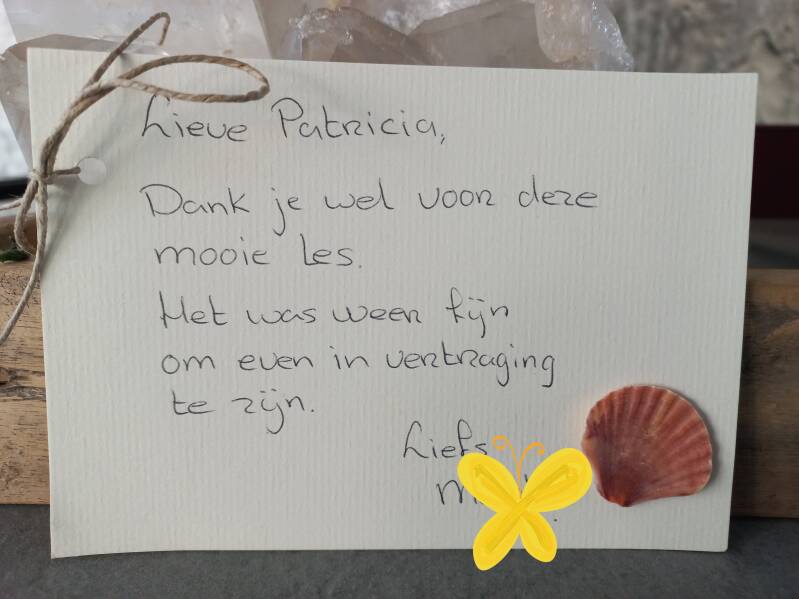 Lieve Patricia,
Dank je wel voor deze
mooie les.
Het was weer fijn
om even in vertraging
te zijn.
Liefs